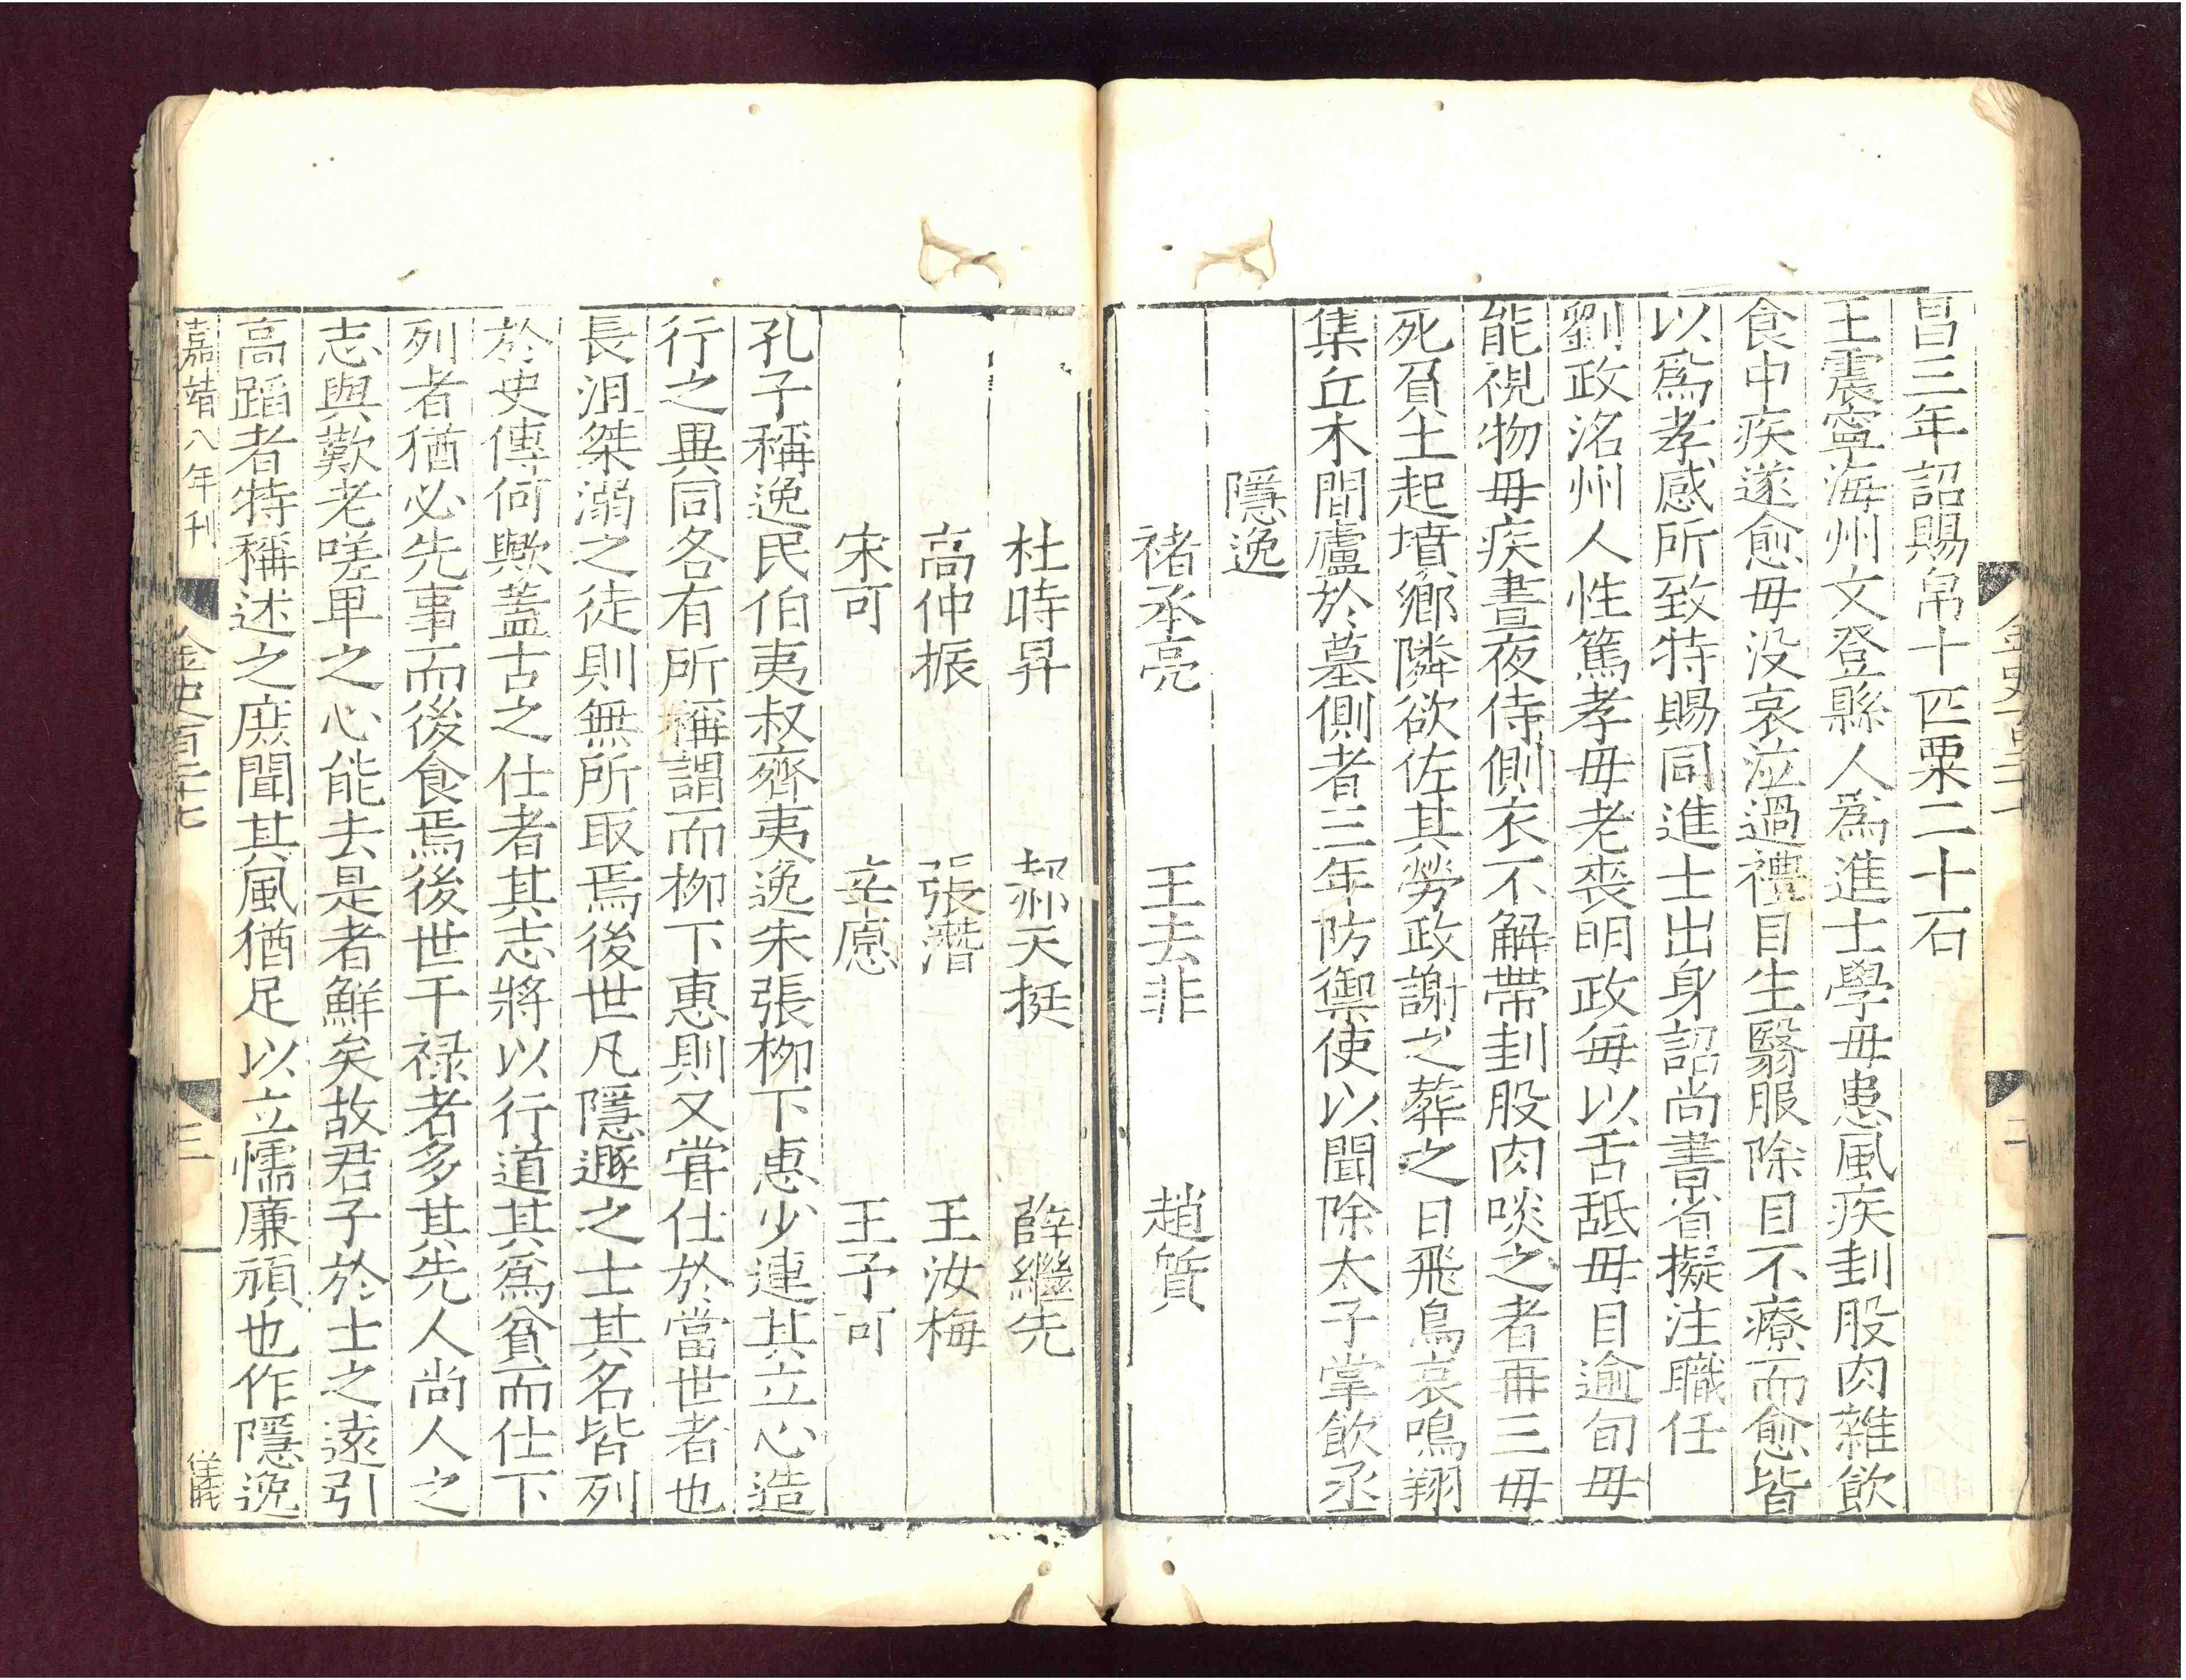 昌三年詔賜帛十匹粟二十石
王震寧海州文登縣人爲進士學母患風疾刲股肉雜飲
食中疾遂愈母没哀泣過禮目生翳服除目不療而愈皆
以爲孝感所致特賜同進士出身詔尚書省擬注職任
劉政洺州人性篤孝母老喪明政每以舌舐母目逾旬母
能視物母疾晝夜侍側衣不解帶刲股肉啖之者再三母
死負土起墳鄉隣欲佐其勞政謝之葬之日飛鳥哀鳴翔
集丘木間廬於墓側者三年防禦使以聞除太子掌飲丞
隱逸
褚承亮 王去非 趙質
杜時昇 郝天挺 薛繼先
高仲振 張潛 王汝梅
宋可 辛愿 王予可
孔子稱逸民伯夷叔齊夷逸朱張柳下惠少連其立心造
行之異同各有所稱謂而柳下惠則又嘗仕於當世者也
長沮桀溺之徒則無所取焉後世凡隱遯之士其名皆列
於史傳何歟蓋古之仕者其志將以行道其爲貧而仕下
列者猶必先事而後食焉後世干禄者多其先人尚人之
志與歎老嗟卑之心能去是者鮮矣故君子於士之遠引
高蹈者特稱述之庶聞其風猶足以立懦廉頑也作隱逸
嘉靖八年刊 金史百二十七 三 儀